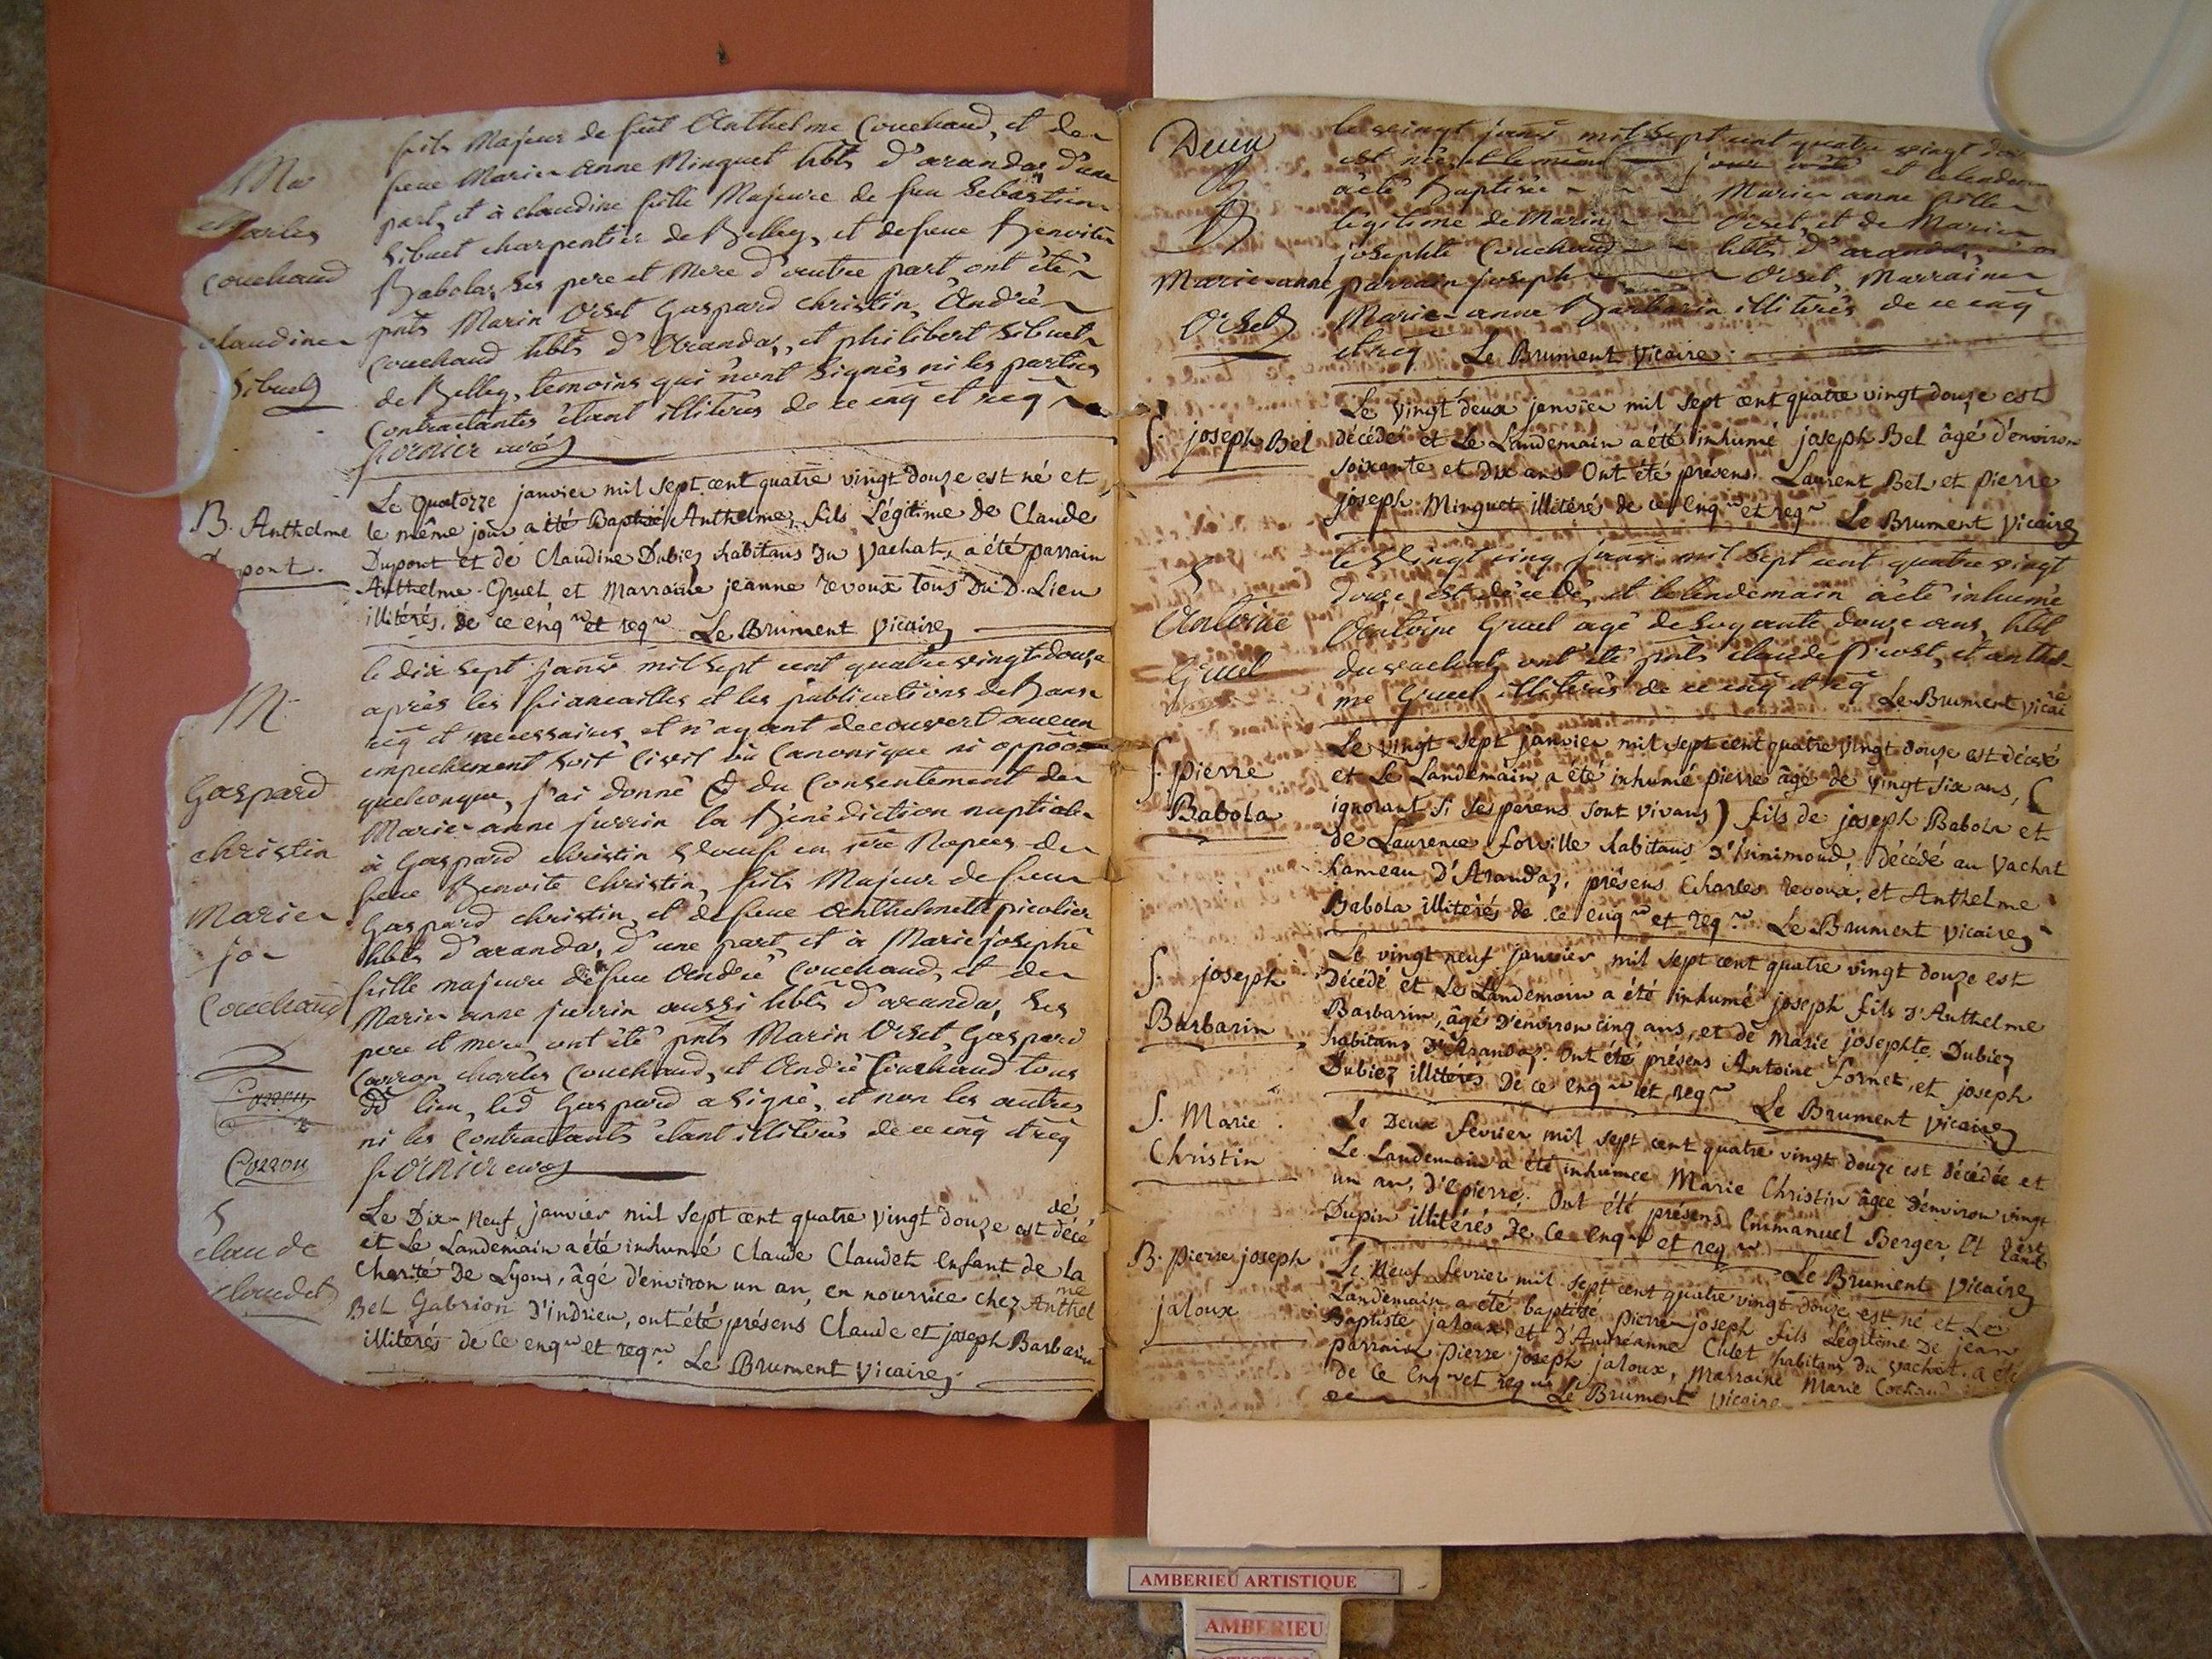 fils Majeur de feu Anthelme Couchaud, et de
feue Marie anne Minguet hbts d'arandas d'une
part, et à claudine fille Majeure de feu Sebastien
Sibuet charpentier de Belley, et de feue Benoite
Babolas ses pere et Mere d'autre part, ont été
pnts Marin Orset Gaspard christin, André
Couchaud hbts d'Arandas, et philibert Sibuet
de Belley, temoins qui n'ont signés ni les parties
Contractantes étant illiterés de ce enq et req
fornier curé
Ma
charles
Couchaud
claudine
Sibuet
Le quatorze janvier mil sept cent quatre vingt douze est né et
le même jour a été Baptisé Anthelme, fils Légitime de Claude
Dupont et de Claudine Dubiez habitans Du Vachat, a été parrain
Anthelme Gruel et Marraine jeanne revoux tous Du D. Lieu
illitérés. de ce enq.re et req.re Le Brument Vicaire
B. Anthelme
Dupont.
le dix sept janv mil sept cent quatre vingt douze
après les fiancailles et les publications de Bans
req et necessaires, et n'ayant decouvert aucun
empechement soit civil ou Canonique ni oppoon
quelconque, j'ai donné & du Consentement de
Marie anne jurrin la Bénédiction nuptiale
à Gaspard christin Veuf en 1ere Nopces de
feue Benoite christin, fils Majeur de feu
Gaspard christin, et de feue Anthelmette picolier
hbts d'arandas, d'une part, et à Marie josephe
fille majeure de feu André Couchaud, et de
Marie anne jurrin aussi hbts d'arandas, ses
pere et mere, ont été pnts Marin Orset, Gaspard
Carron, charles Couchaud, et André Couchaud tous
dd lieu, led Gaspard a signé, et non les autres
ni les Contractants étant illiterés de ce enq et req
fornier curé
M
Gaspard
christin
Marie
jo
Couchaud
Corron
Le Dix-Neuf janvier mil sept cent quatre vingt douze est décédé
et Le Landemain a été inhumé Claude Claudet Enfant de la
Charité De Lyons, âgé d'environ un an, en nourrice chez Anthelme
Bel Gabrion D'indrieu, ont été présens Claude et joseph Barbarin
illiterés de ce enq.re et req.re Le Brument Vicaire
S
claude
claudet
Deux
le vingt janv mil sept cent quatre vingt dou
est née, et le meme jour a été et lelendem
a été Baptisée Marie anne fille
légitime de Marin Orset, et de Marie
josephte Couchaud hbts d'arandas,
parrain joseph Orset, Marraine
Marie-anne Barbarin illiterés de ce enq
et req Le Brument Vicaire
B
Marie-anne
Orset
Le vingt deux janvier mil sept cent quatre vingt douze est
décédé et Le Landemain a été inhumé joseph Bel âgé d'environ
soixante et Dix ans. Ont été présens. Laurent Bel et Pierre
joseph Minguet illitérés de ce enq.re et req.re Le Brument Vicaire
S. joseph Bel
le Vingt cinq janv mil sept cent quatre vingt
douze est décédé, et lelendemain a été inhumé
Antoine Gruel agé de soixante douze ans, hbt
du vachat, ont été pnts claude prost, et anthel-
me Gruel illiterés de ce enq et req Le Brument vicaire
S
Antoine
Gruel
Le vingt sept janvier mil sept cent quatre vingt douze est décédé
et Le Landemain a été inhumé pierre âgé de vingt six ans, (
ignorant si ses parens sont vivans) fils de joseph Babola et
de Laurence forville habitans D'isinimoud, Décédé au Vachat
hameau D'Arandaz, présens Charles revoux, et Anthelme
Babola illiterés de ce enq.re et req.re Le Brument Vicaire
S. pierre
Babola
Le vingt neuf janvier mil sept cent quatre vingt douze est
Décédé et Le Landemain a été inhumé joseph fils d'Anthelme
Barbarin, âgé d'environ cinq ans, et de Marie josephte Dubiez
habitans D'Arandaz. Ont été présens Antoine fornet, et joseph
Dubiez illitérés De ce enq.re et req.re Le Brument Vicaire
S. joseph
Barbarin
Le Deux fevrier mil sept cent quatre vingt douze est décédée et
Le Landemain a été inhumée Marie Christin âgée D'environ vingt
un an, d'Epierre. Ont été présens Emmanuel Berger, Et
Dupin illitérés De ce enq.re et req.re Le Brument Vicaire
S. Marie
Christin
Le Neuf fevrier mil sept cent quatre vingt douze est né et Le
Landemain a été baptisé pierre-joseph fils Légitime De jean
Baptiste jaloux, et D'Andréanne Culet habitans du vachat. a été
parrain Pierre joseph jaloux, Marraine Marie Cochaud
de ce enq.re et req.re Le Brument Vicaire
B. pierre joseph
jaloux
AMBERIEU ARTISTIQUE
AMBERIEU